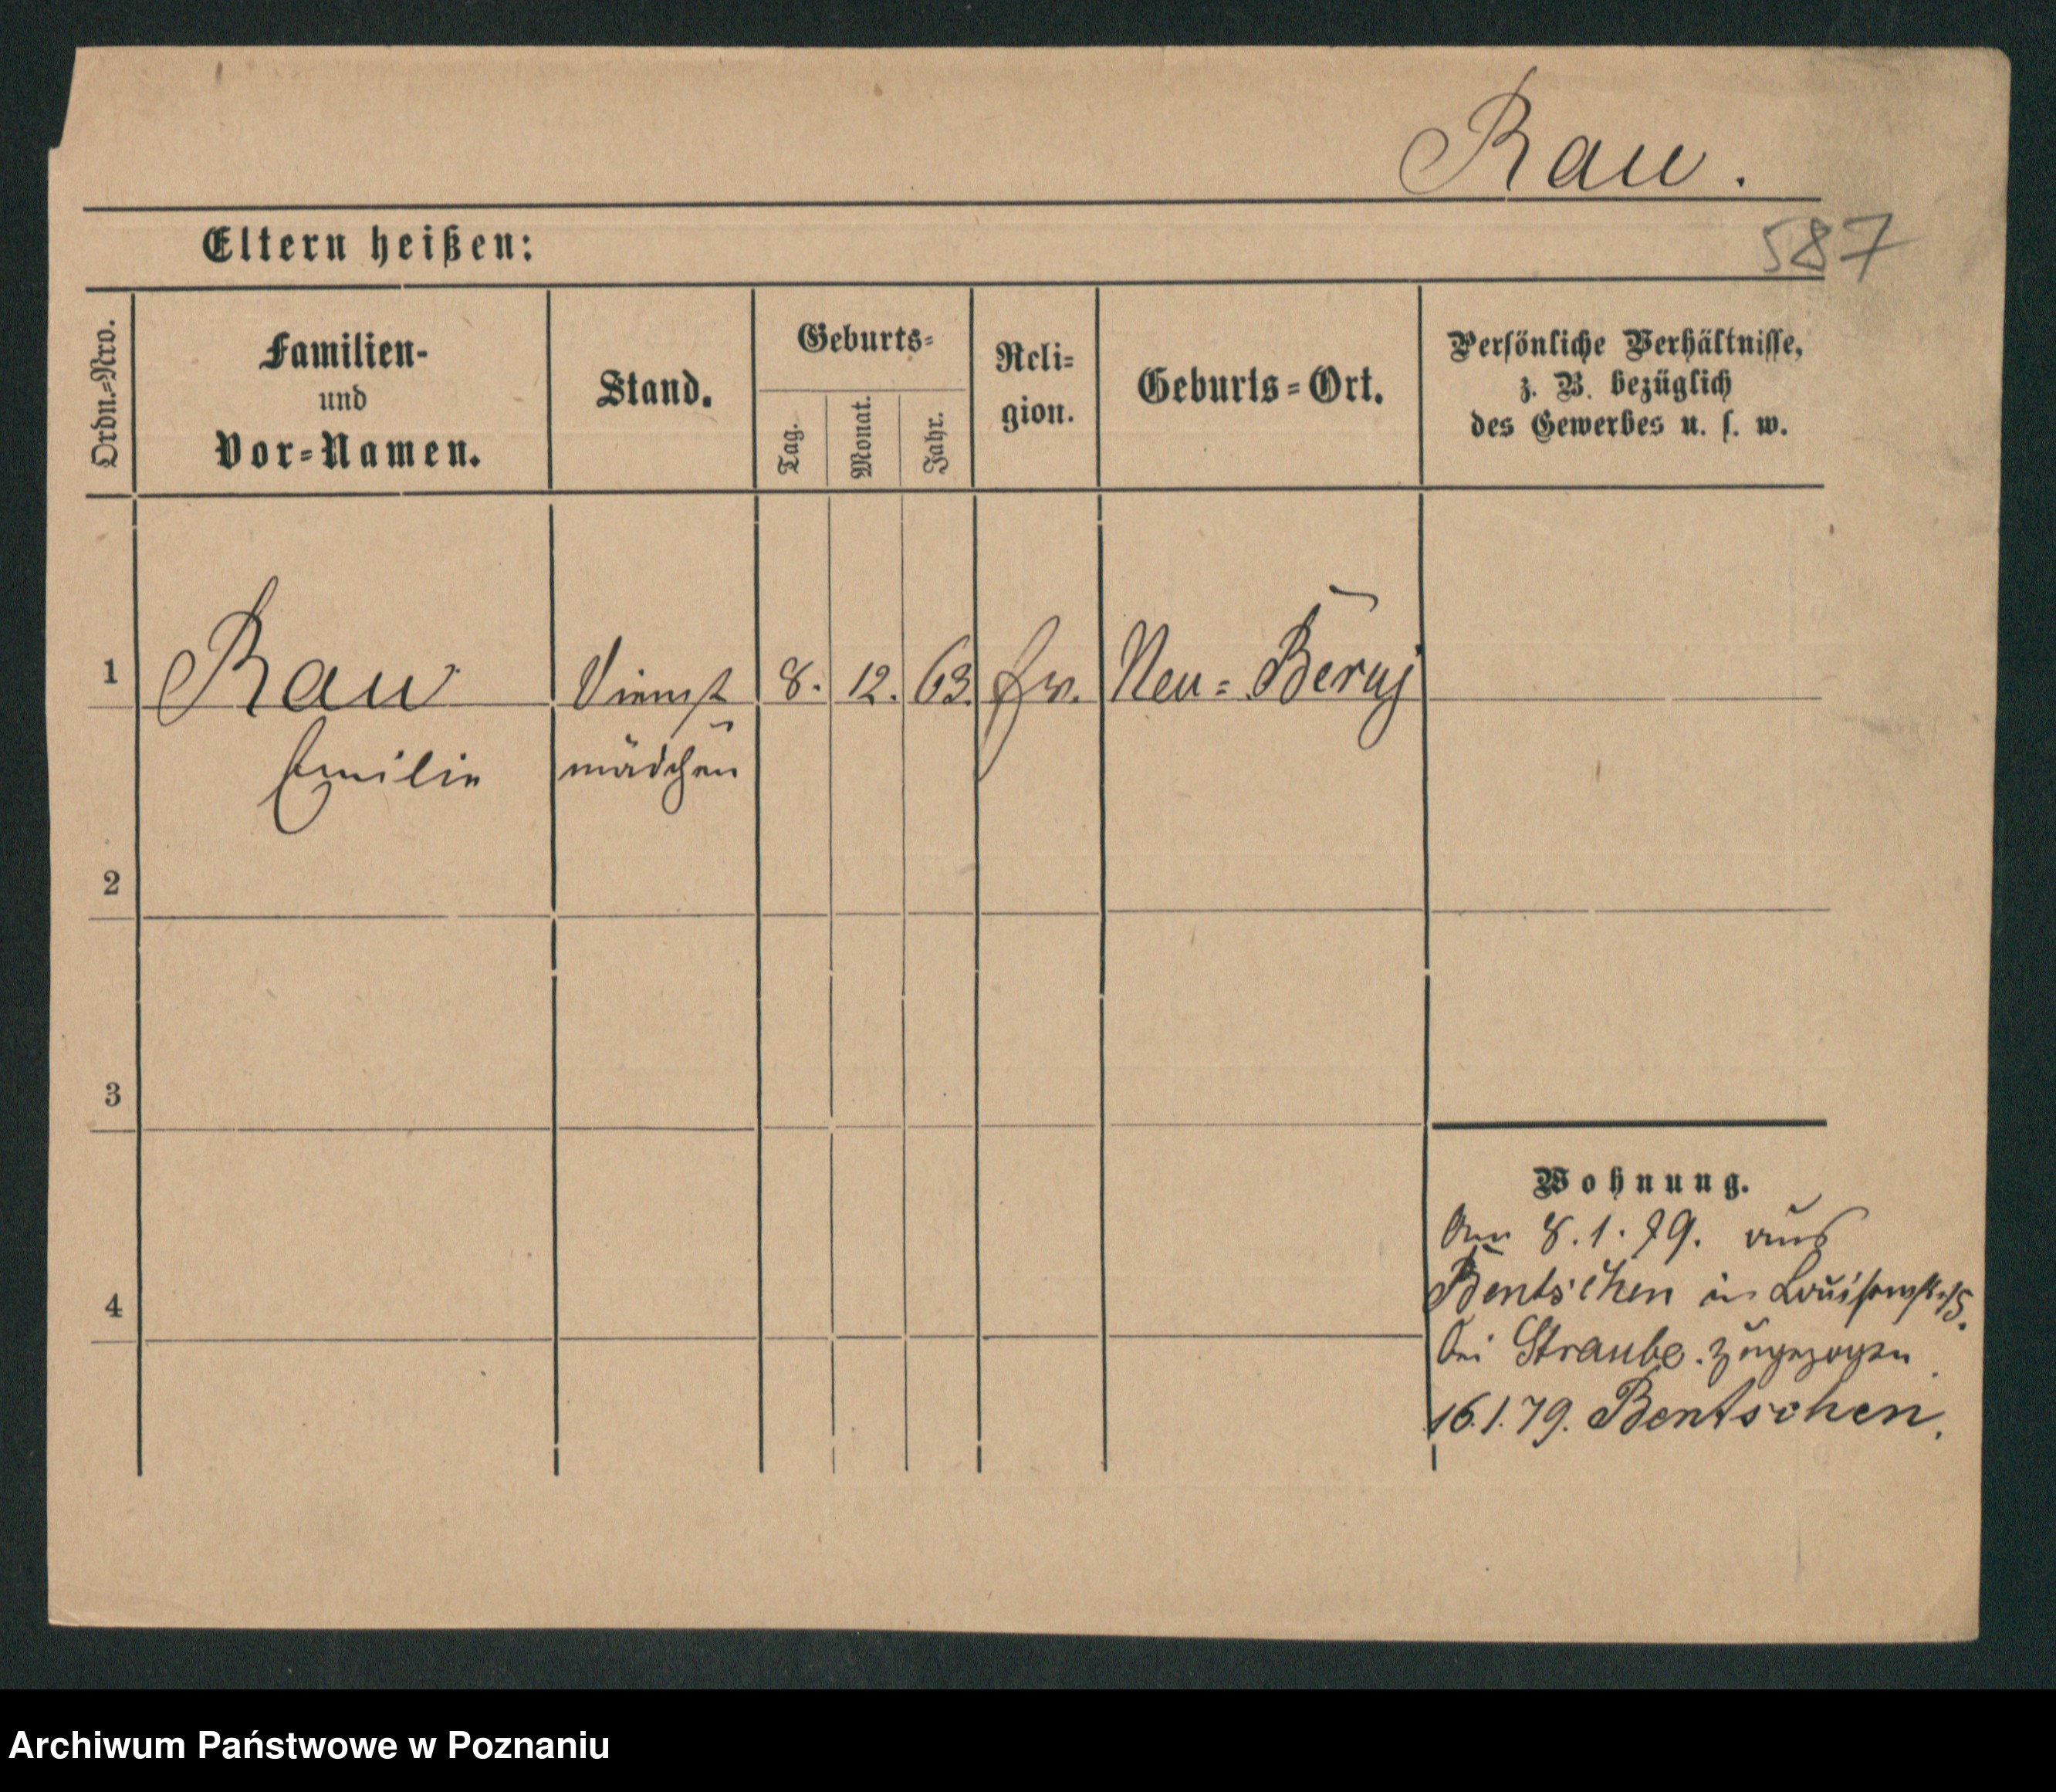 Rau.
587
Eltern heißen:
Ordn.=Nro.
Familien-
und
Vor=Namen.
Stand.
Geburts=
Tag.
Monat.
Jahr.
Reli=
gion.
Geburts=Ort.
Persönliche Verhältnisse,
z. B. bezüglich
des Gewerbes u. s. w.
1 Rau Dienst 8. 12. 63. Neu=
Emilie mädchen
2
3
4
Wohnung.
Am 8.1.79. aus
Bentschen in
bei Straube. zugezogen
16.1.79. Bentschen.
Archiwum Państwowe w Poznaniu